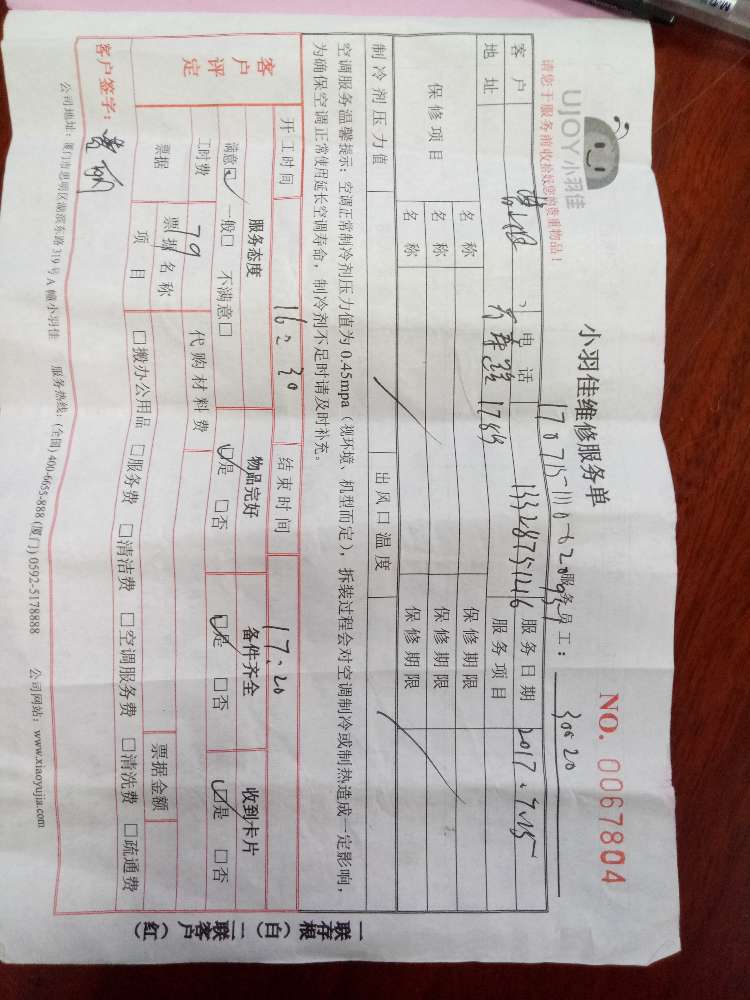 UJOY小羽佳
请您于服务前收拾好您的贵重物品！
小羽佳维修服务单
NO. 0067804
服务员工： 30620
客户 电话 13328751216 服务日期 2017.7.15
地址 服务项目
保修项目 名称 保修期限
名称 保修期限
名称 保修期限
制冷剂压力值 出风口温度
空调服务温馨提示：空调正常制冷剂压力值为 0.45mpa（视环境、机型而定），拆装过程会对空调制冷或制热造成一定影响，
为确保空调正常使用延长空调寿命，制冷剂不足时请及时补充。
开工时间 16：30 结束时间 17.20
客户评定 服务态度 物品完好 备件齐全 收到卡片
满意☑ 一般□ 不满意□ ☑是 □否 ☑是 □否 ☑是 □否
工时费 79 代购材料费
票据 票据名称 票据金额
项目 □搬办公用品 □服务费 □清洁费 □空调服务费 □清洗费 □疏通费
客户签字：
公司地址：厦门市思明区湖滨东路 319 号 A 幢小羽佳 服务热线：(全国) 400-6655-888 (厦门) 0592-5178888 公司网站：www.xiaoyujia.com
一联存根（白）二联客户（红）